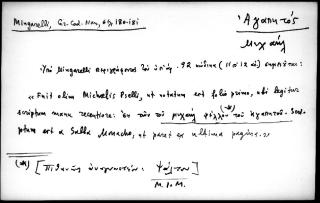 Mingarelli, Gr. Cod. Nan., 180-181
Ἀγαπητός
Μιχαήλ
Ὑπὸ Mingarelli περιγράφεται ὑπ' ἀρ. 92 κώδικα (11ου 12 αἰ) σημειοῦται:
« Fuit olim Michaelis Pselli, ut notatum est folio primo, ubi legitur
scriptum manu recentiore: ἐκ τῶν τοῦ μιχαὴλ ψελλοῦ (*) τοῦ ἀγαπητοῦ. Scri-
ptum est a Sabba Monacho, ut patet ex ultima pagina. »
(*) [Πιθανῶς ἀναγνωστέον: ψάλτου]
Μ. Ι. Μ.